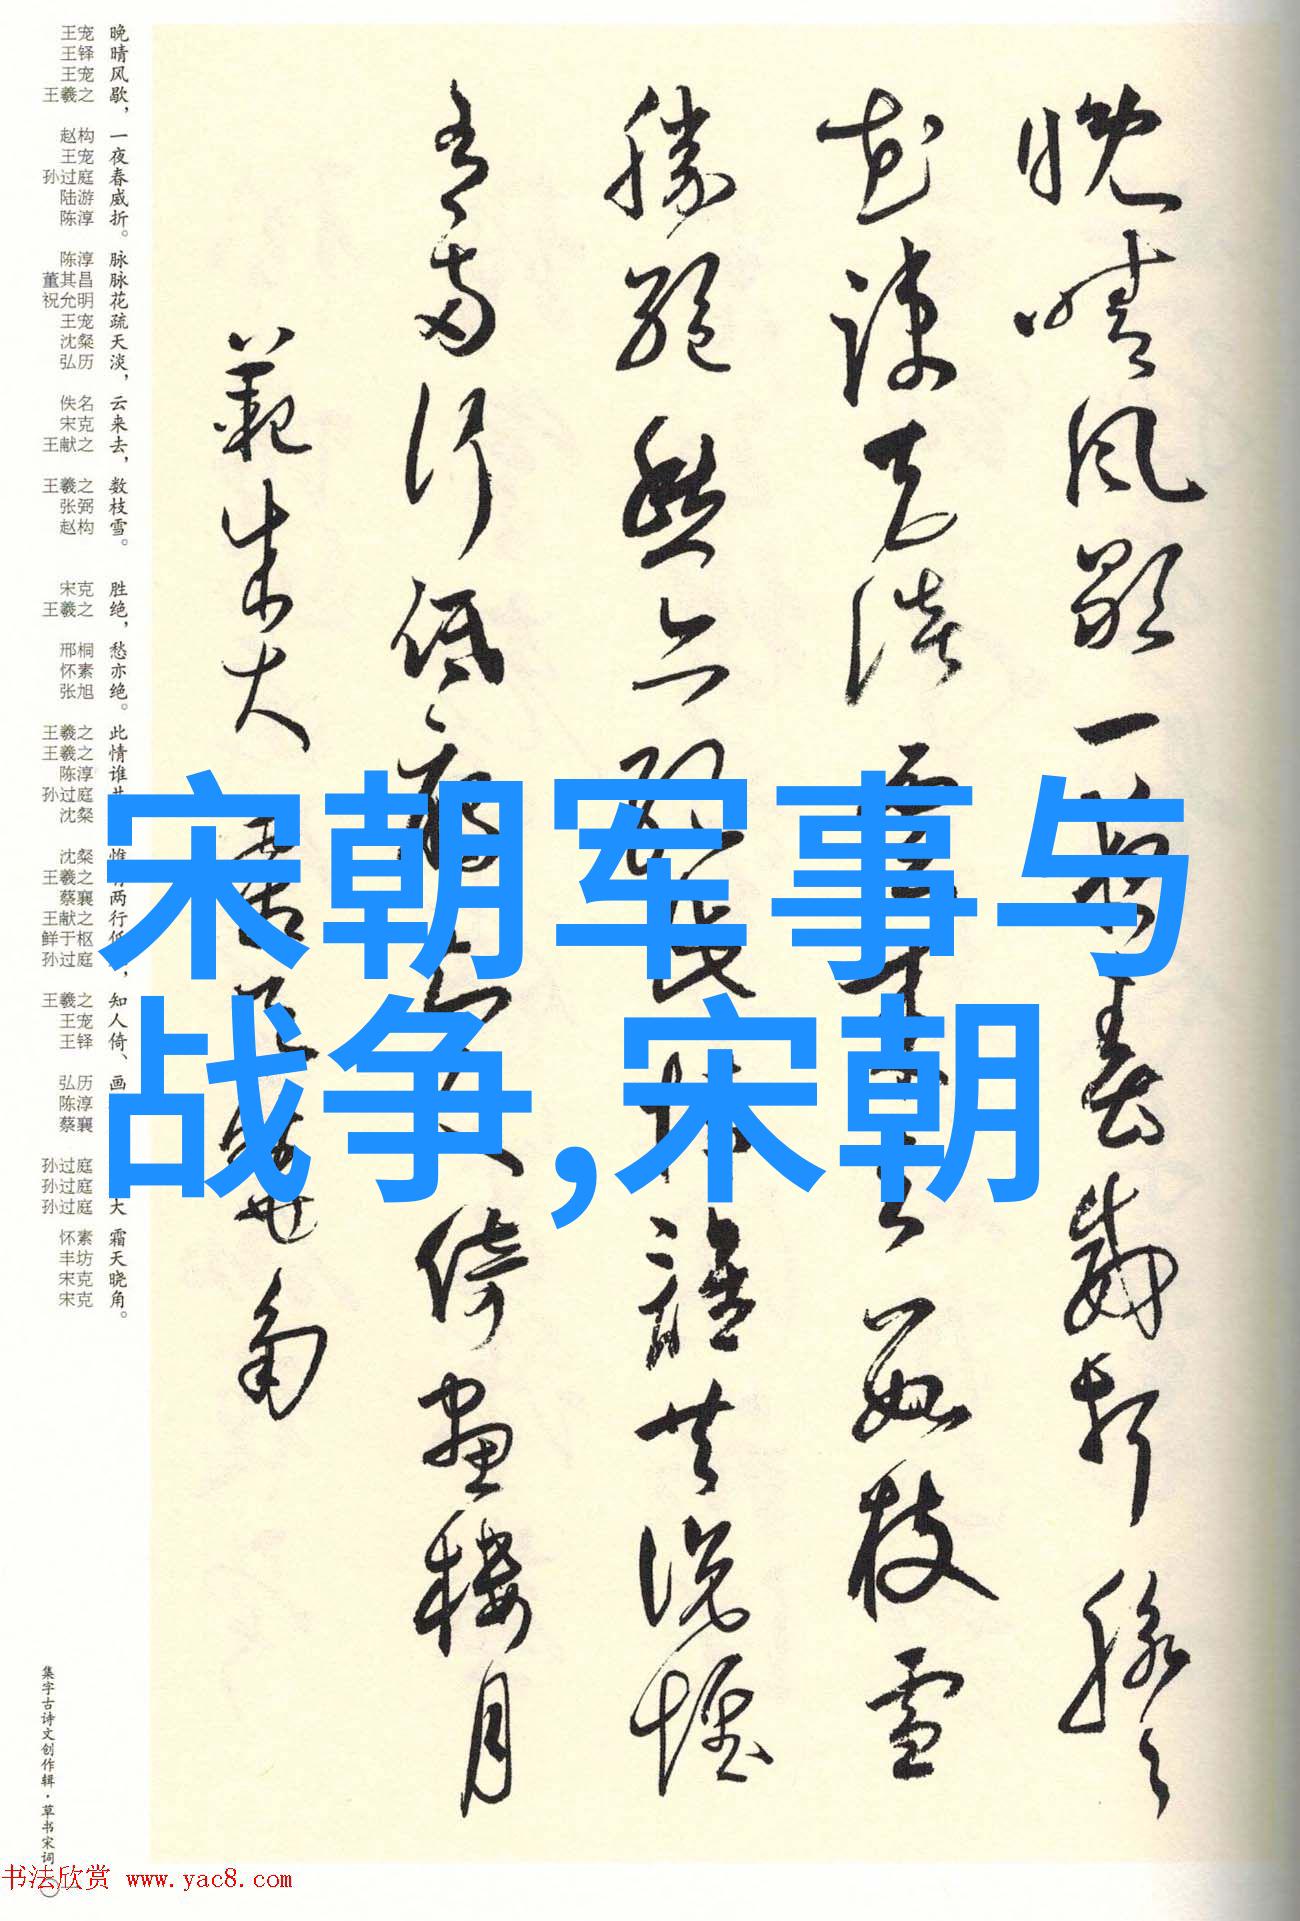 晚晴風歇一夜春威折脉脉
花疎天淡雲来去數枝雪
勝絕愁亦絕此情誰共說惟
有兩行低雁知人倚畫樓月
範成大霜天曉角
宋朝军事与
战争,宋朝
晚晴风歇，
一夜春威折。
脉脉花疏天淡，
云来去，
数枝雪。
胜绝，
愁亦绝。
此情谁
两行
知人倚、
画
大
霜天晓角。
王宠 王铎 王宠 王羲之
赵构 王宠 孙过庭 陆游 陈淳
陈淳 董其昌 祝允明 王宠 沈粲 弘历
佚名 宋克 王献之
王羲之 张弼 赵构
宋克 王羲之
邢桐 怀素 张旭
王羲之 王羲之 陈淳 孙过庭 沈粲
沈粲 王羲之 蔡襄 王献之 鲜于枢 孙过庭
王羲之 王宠 王铎
弘历 陈淳 蔡襄
孙过庭 孙过庭 孙过庭
怀素 丰坊 宋克 宋克
集字古诗文创作辑·草书宋词
书法欣赏 www.yac8.com